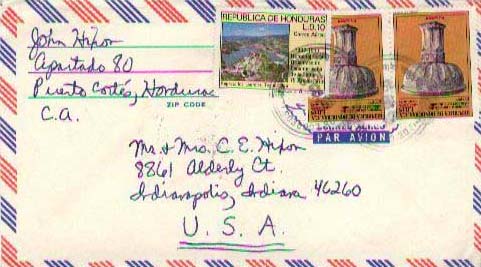 John Hixon
Apartado 80
Puerto Cortés, Honduras
ZIP CODE
C.A.
REPUBLICA DE HONDURAS
L.0.10
Correo Aéreo
CORREO AEREO
PAR AVION
Mr. & Mrs. C. E. Hixon
8861 Alderly Ct.
Indianapolis, Indiana 46260
U. S. A.